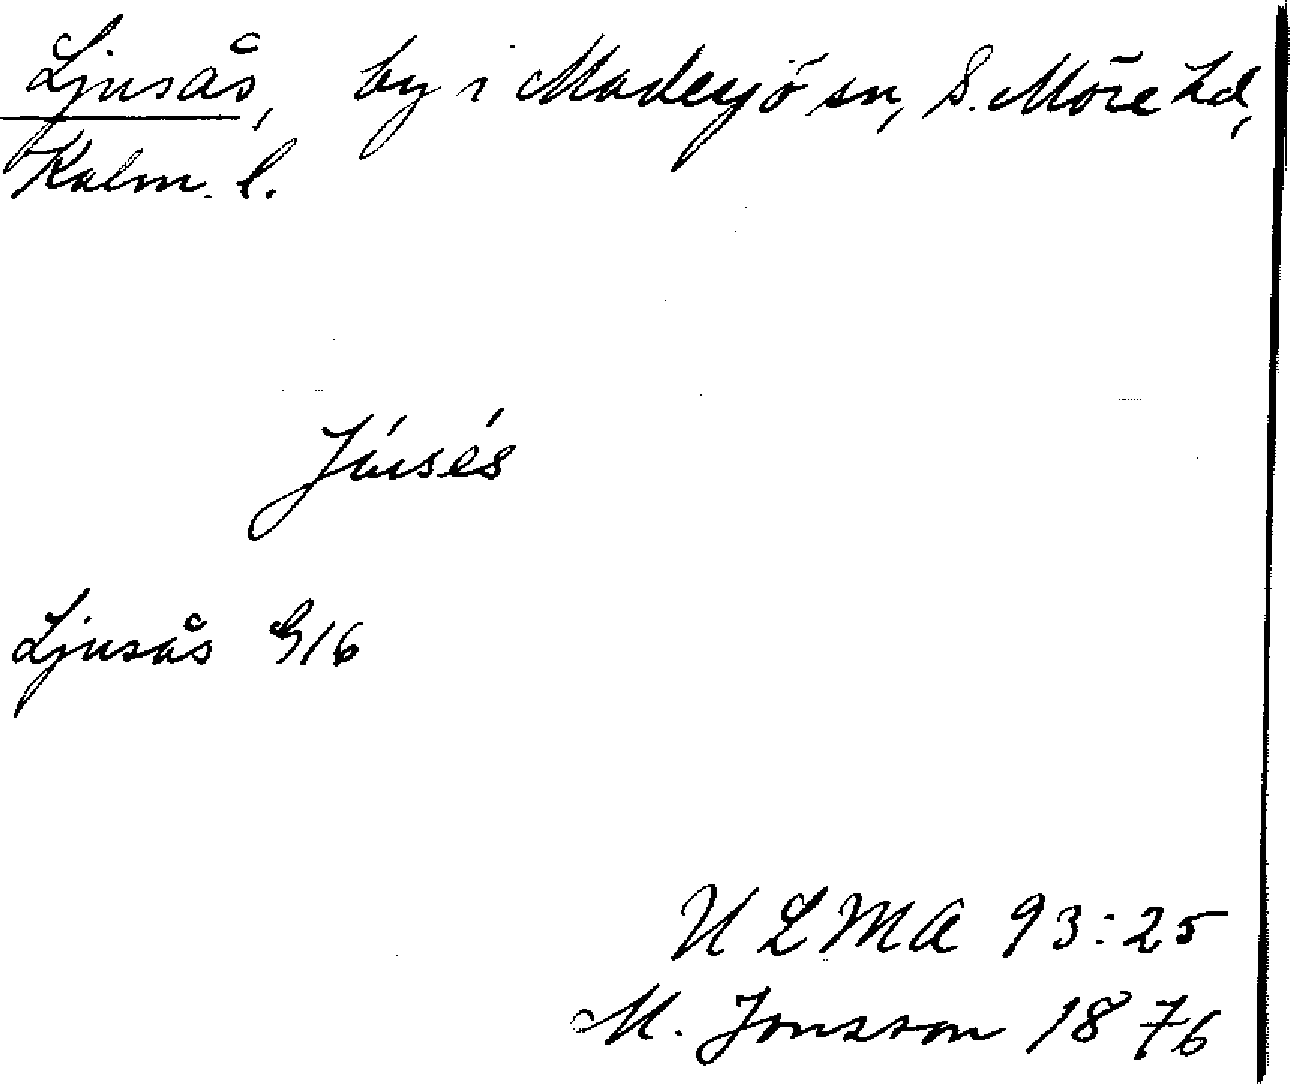 Ljusås, by i Madesjö sn, S. Möre hd,
Kalm. l.
Júsés
Ljusås G16
ULMA 93:25
M. Jonsson 1876